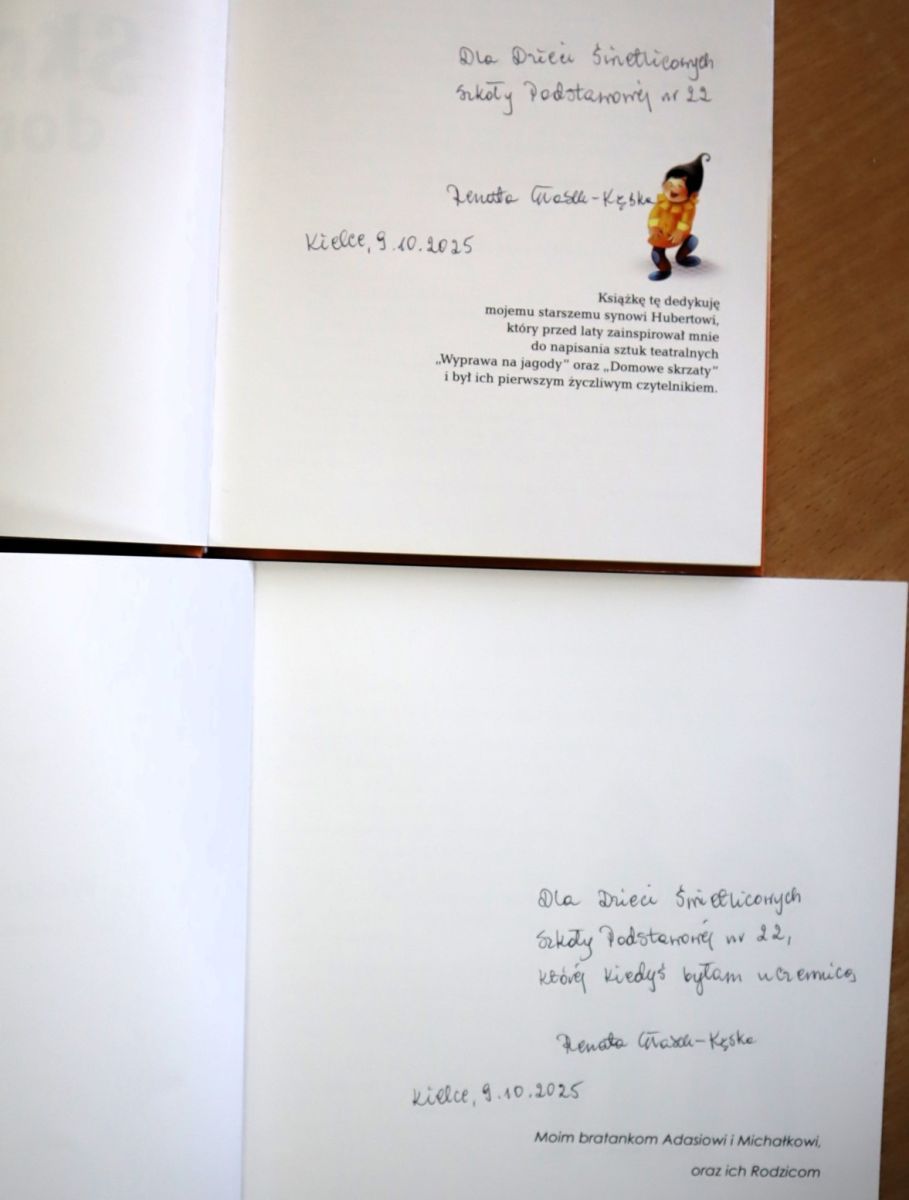 Dla Dzieci Świetlicowych
Szkoły Podstawowej nr 22
Renata Głasek-Kęska
Kielce, 9.10.2025
Książkę tę dedykuję
mojemu starszemu synowi Hubertowi,
który przed laty zainspirował mnie
do napisania sztuk teatralnych
„Wyprawa na jagody” oraz „Domowe skrzaty”
i był ich pierwszym życzliwym czytelnikiem.
Dla Dzieci Świetlicowych
Szkoły Podstawowej nr 22,
której kiedyś byłam uczennicą
Renata Głasek-Kęska
Kielce, 9.10.2025
Moim bratankom Adasiowi i Michałkowi,
oraz ich Rodzicom